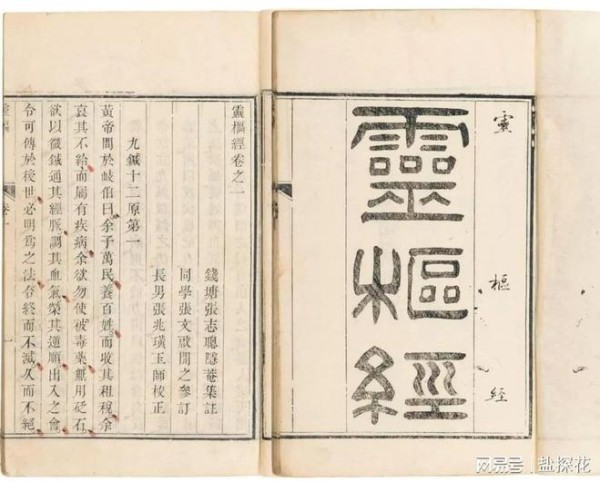 靈樞經
靈樞經
靈樞經卷之一
錢塘張志聰隱菴集註
同學張文啟開之參訂
長男張兆璜玉師校正
九鍼十二原第一
黃帝問於岐伯曰余子萬民養百姓而收其租稅余
哀其不給而屬有疾病余欲勿使被毒藥無用砭石
欲以微鍼通其經脈調其血氣榮其逆順出入之會
令可傳於後世必明為之法令終而不滅久而不絕
卷一
网易号 | 盐探花